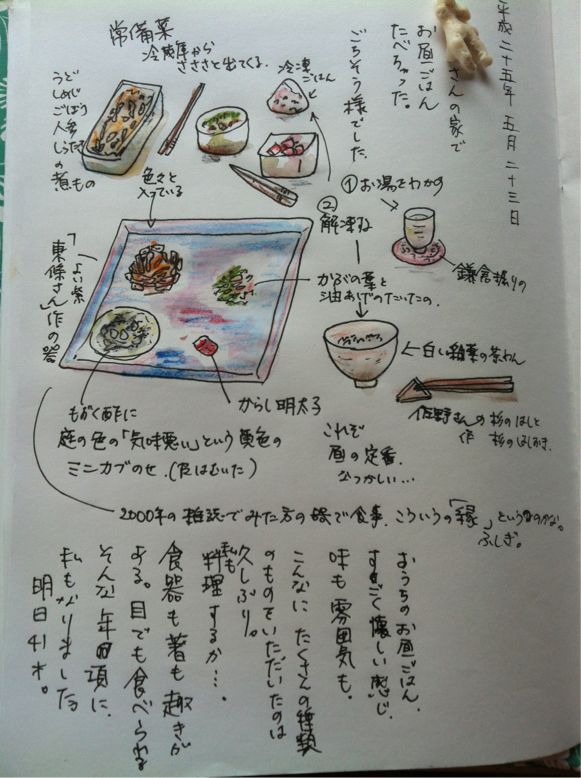 平成二十五年 五月 二十三日
さんの家で
お昼ごはん
たべちゃった。
ごちそう様でした。
常備菜
冷蔵庫から
さささと出てくる。
冷凍
ごはん
うど
しめじ
ごぼう
人参
しらたき
の煮もの
色々と
入っている
①お湯をわかす
②
解凍ね
鎌倉彫りの
かぶの葉と
油あげのたいたの。
「よい紫」
東條さん作の器
白い釉薬の茶わん
佐野さんの 杉のはしと
作 杉のはしおき。
もずく酢に
庭の色の「気味悪い」という黄色の
ミニカブのせ。(皮はむいた)
からし明太子
これぞ
昼の定番。
なつかしい…
2000年の雑誌でみた方の 家で食事。こういうの「縁」というのかな。
ふしぎ。
おうちのお昼ごはん。
すごく懐しい感じ。
味も雰囲気も。
こんなに たくさんの種類
のものをいただいたのは
久しぶり。
私も
料理するか…。
食器も箸も趣きが
ある。目でも食べられる
そんな年頃に
私もなりました
明日41才。